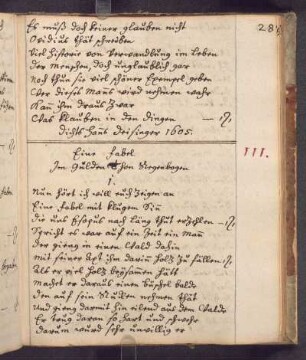 Er muß doch keiner glauben nicht
Ovidius that schreiben
Viel Historie von Verwandlung im Leben
Der Menschen, doch unglaublich gar
Noch thun sie viel schöner Exempel geben
Wer dieses wird nehmen wahr
Kan ihm draus zwar
Das klauben in den dingen
Dichts Hans Deisinger 1605.
287
Eine Fabel
Im Gulden Thon Regenbogen
III.
1.
Nun hört ich will euch Zeigen an
Eine Fabel mit klugen Sin
di uns Esopus nach lang thut erzehlen
Spricht es war auf ein Zeit ein Man
Der gieng in einen Wald dahin
mit seiner Axt ihm darin Holtz zu fällen
Als er viel Holtz beysamen hätt
Machet er daraus einen büschel balde
den auf sein Rucken nehmen thät
Und gieng darmit hin eilend aus dem Walde
Er trug daran so hart und schwehr
darum wurd sehr unwillig er